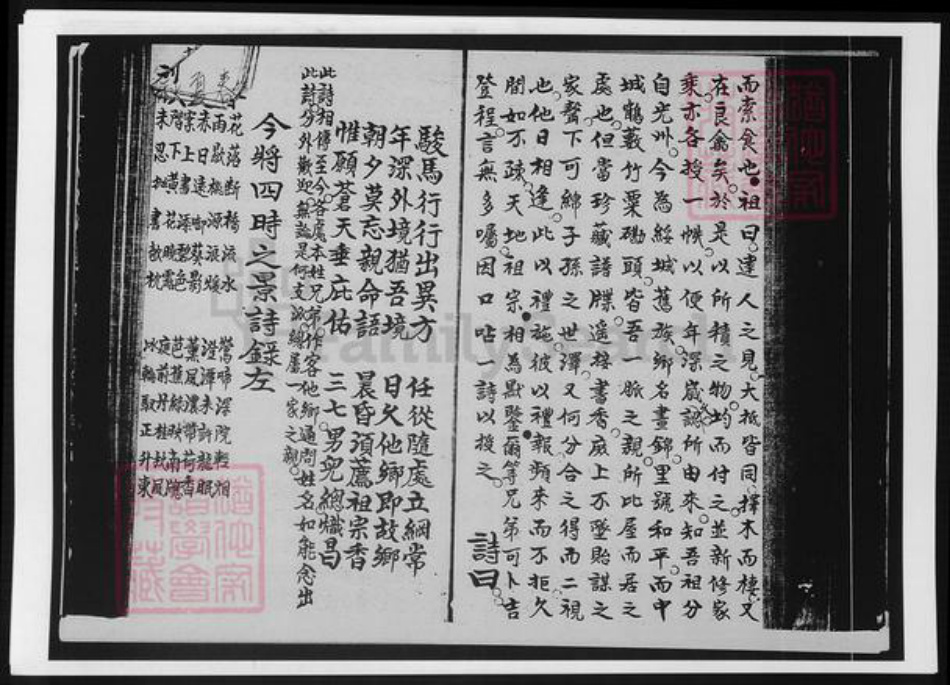 而索食也祖曰達人之見大抵皆同擇木而棲又
在良禽矣於是以所積之物均而付之並新修家
乘亦各授一帙以便年深歲認所由來知吾祖分
自光州今為綏城舊族鄉名畫錦里號和平而中
城鶴藪竹粟磡頭皆吾一脈之親所比屋而居之
處也但當珍藏譜牒遥接書香庶上不墜貽謀之
家聲下可綿子孫之世澤又何分合之得而二視
也他日相逢此以禮施彼以禮報頻來而不拒久
間如不疎天地祖宗相為默鑒爾等兄弟可卜吉
登程言無多囑因口呫一詩以授之 詩曰
駿馬行行出異方 任從隨處立綱常
年深外境猶吾境 日久他鄉即故鄉
朝夕莫忘親命語 晨昏須薦祖宗香
惟願蒼天垂庇佑 三七男兒總熾昌
此詩相傳至今各處本姓兄弟作客他鄉通問姓名如能念出
此詩分外歡迎無論是何支派總屬一家之親
今將四時之景詩錄左
花落斷橋流水 鶯啼深院輕烟
雨歇桃源浪煖 澄潭未許龍眠
赤日遠鄉葵影 薰風濃帶荷香
案上書深墨色 芭蕉綠映南牕
階下黃花晚露 庭前丹桂秋風
未忍抛書教枕 冰輪馭正升東